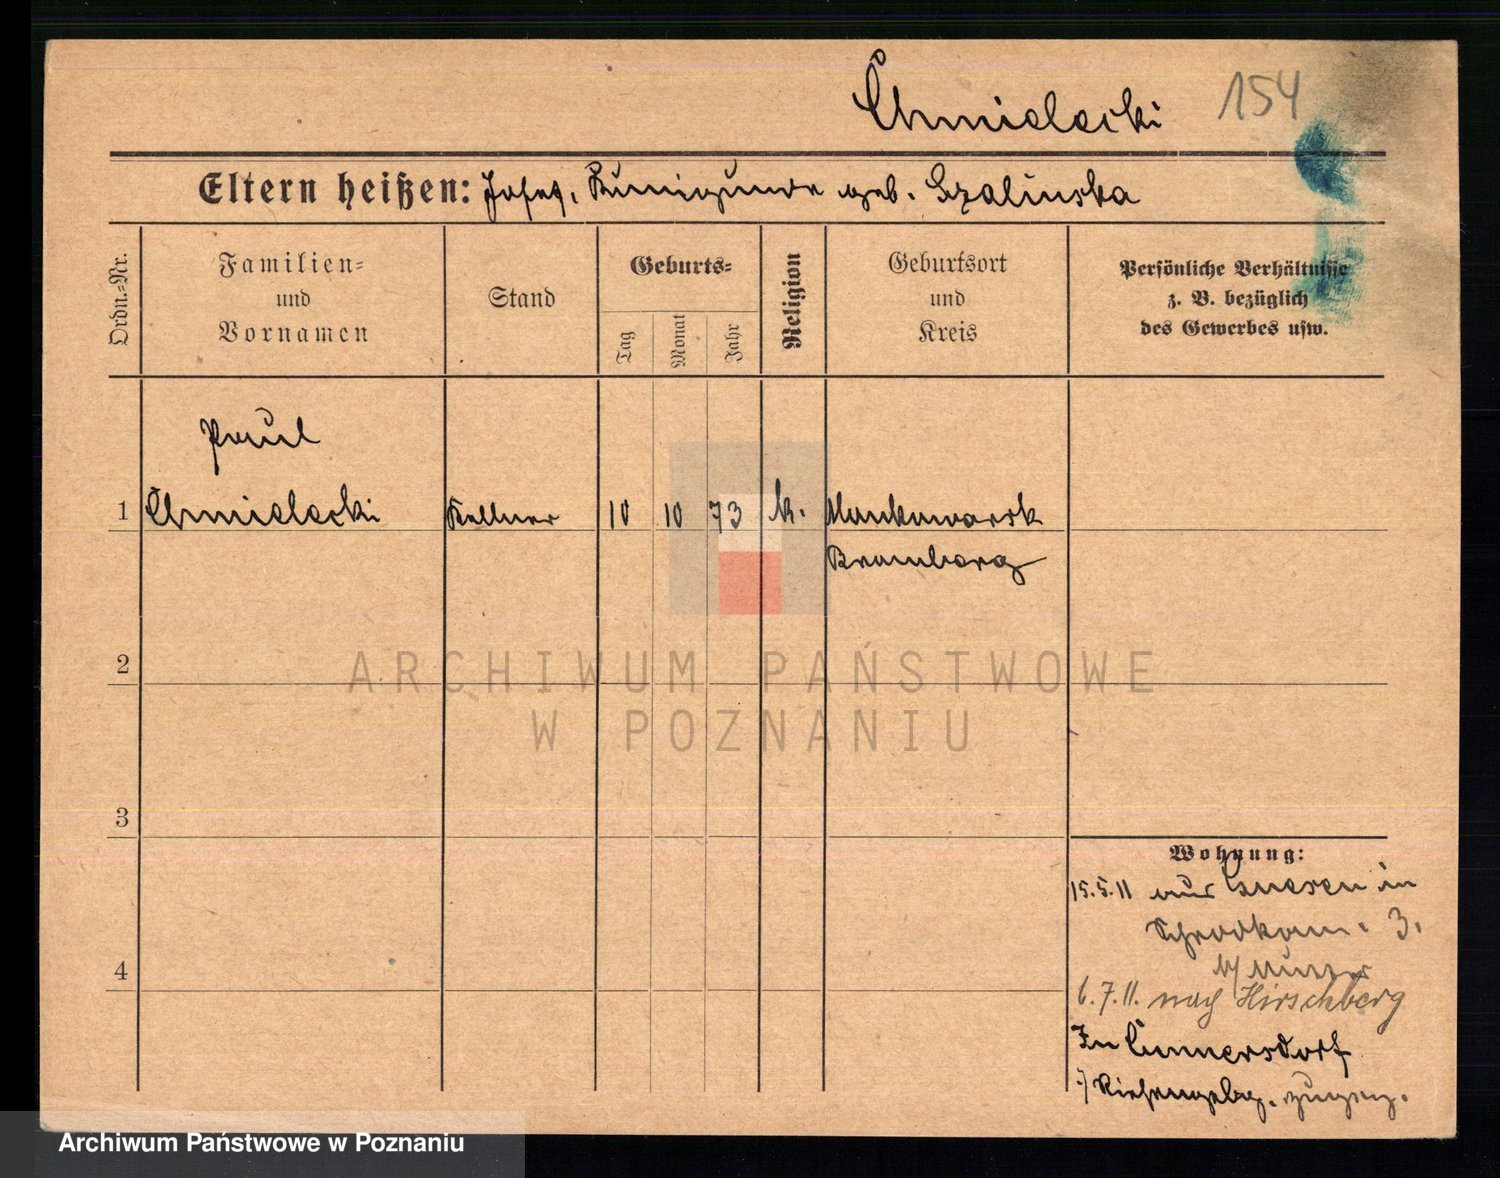 Chmielecki 154
Eltern heißen: Josef, Kunigunde geb. Szalinska
Ordn.-Nr.
Familien-
und
Vornamen
Stand
Geburts-
Tag
Monat
Jahr
Religion
Geburtsort
und
Kreis
Persönliche Verhältnisse
z. B. bezüglich
des Gewerbes usw.
Paul
1 Chmielecki Kellner 10 10 73 k.
Bromberg
2
ARCHIWUM PAŃSTWOWE
W POZNANIU
3
Wohnung:
15.5.11 aus Gnesen in
3.
4
6.7.11. nach Hirschberg
In Cunnersdorf
Archiwum Państwowe w Poznaniu